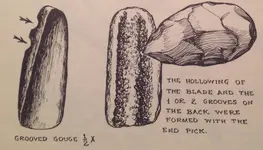 THE HOLLOWING OF
THE BLADE AND THE
1 OR 2 GROOVES ON
THE BACK WERE
FORMED WITH THE
END PICK.
GROOVED GOUGE ½ X